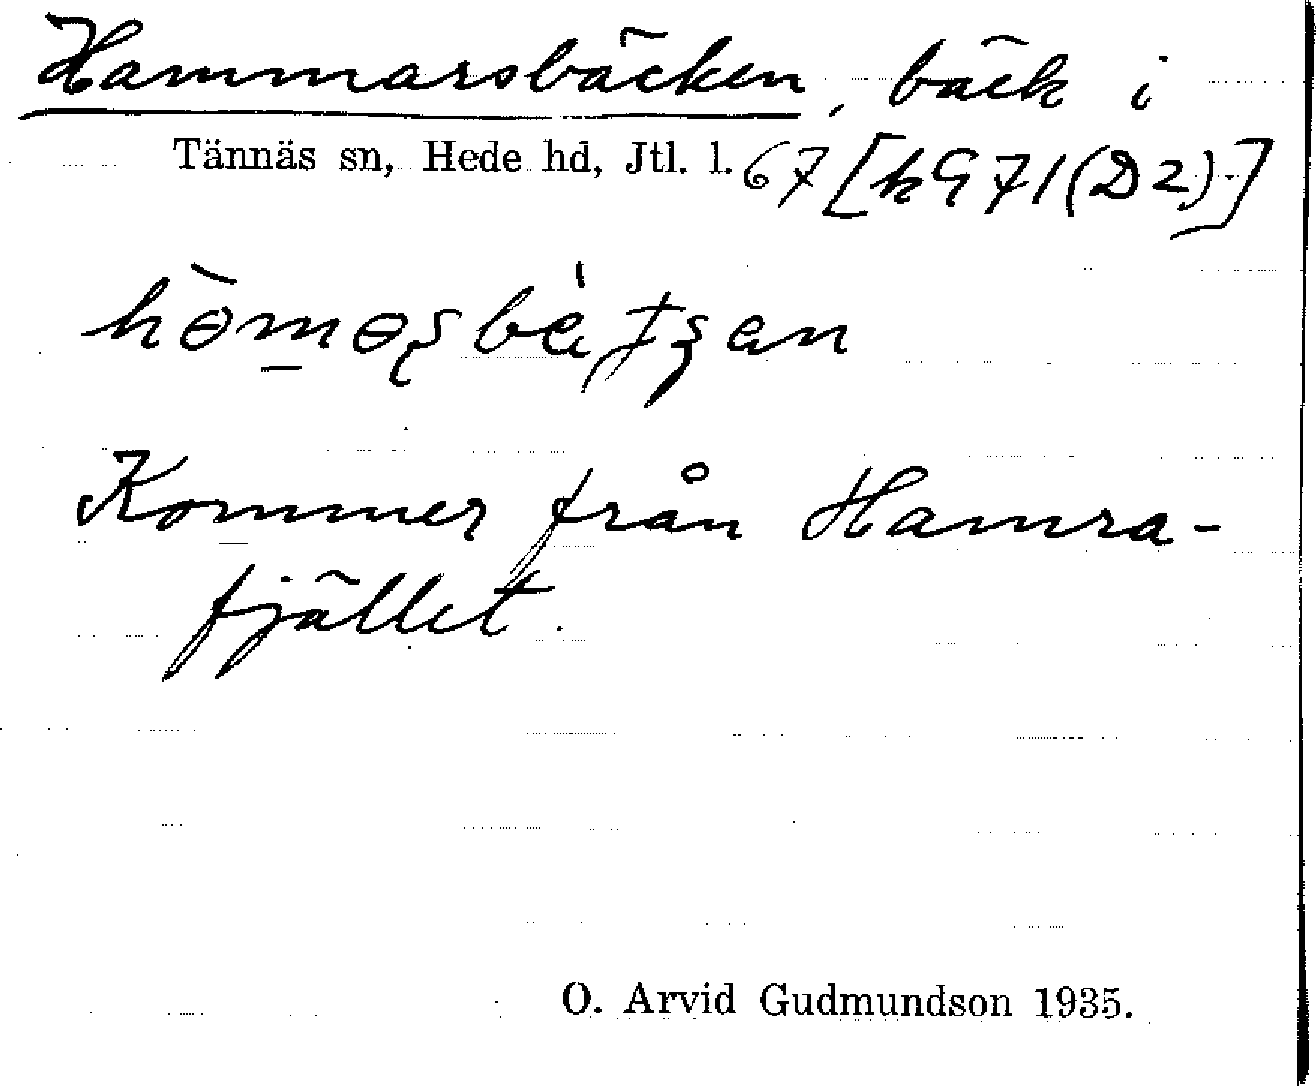 Hammarsbäcken, bäck i
Tännäs sn, Hede hd, Jtl. l. 67 [k971(D2)-]
Kommer från Hamra-
fjället.
O. Arvid Gudmundson 1935.